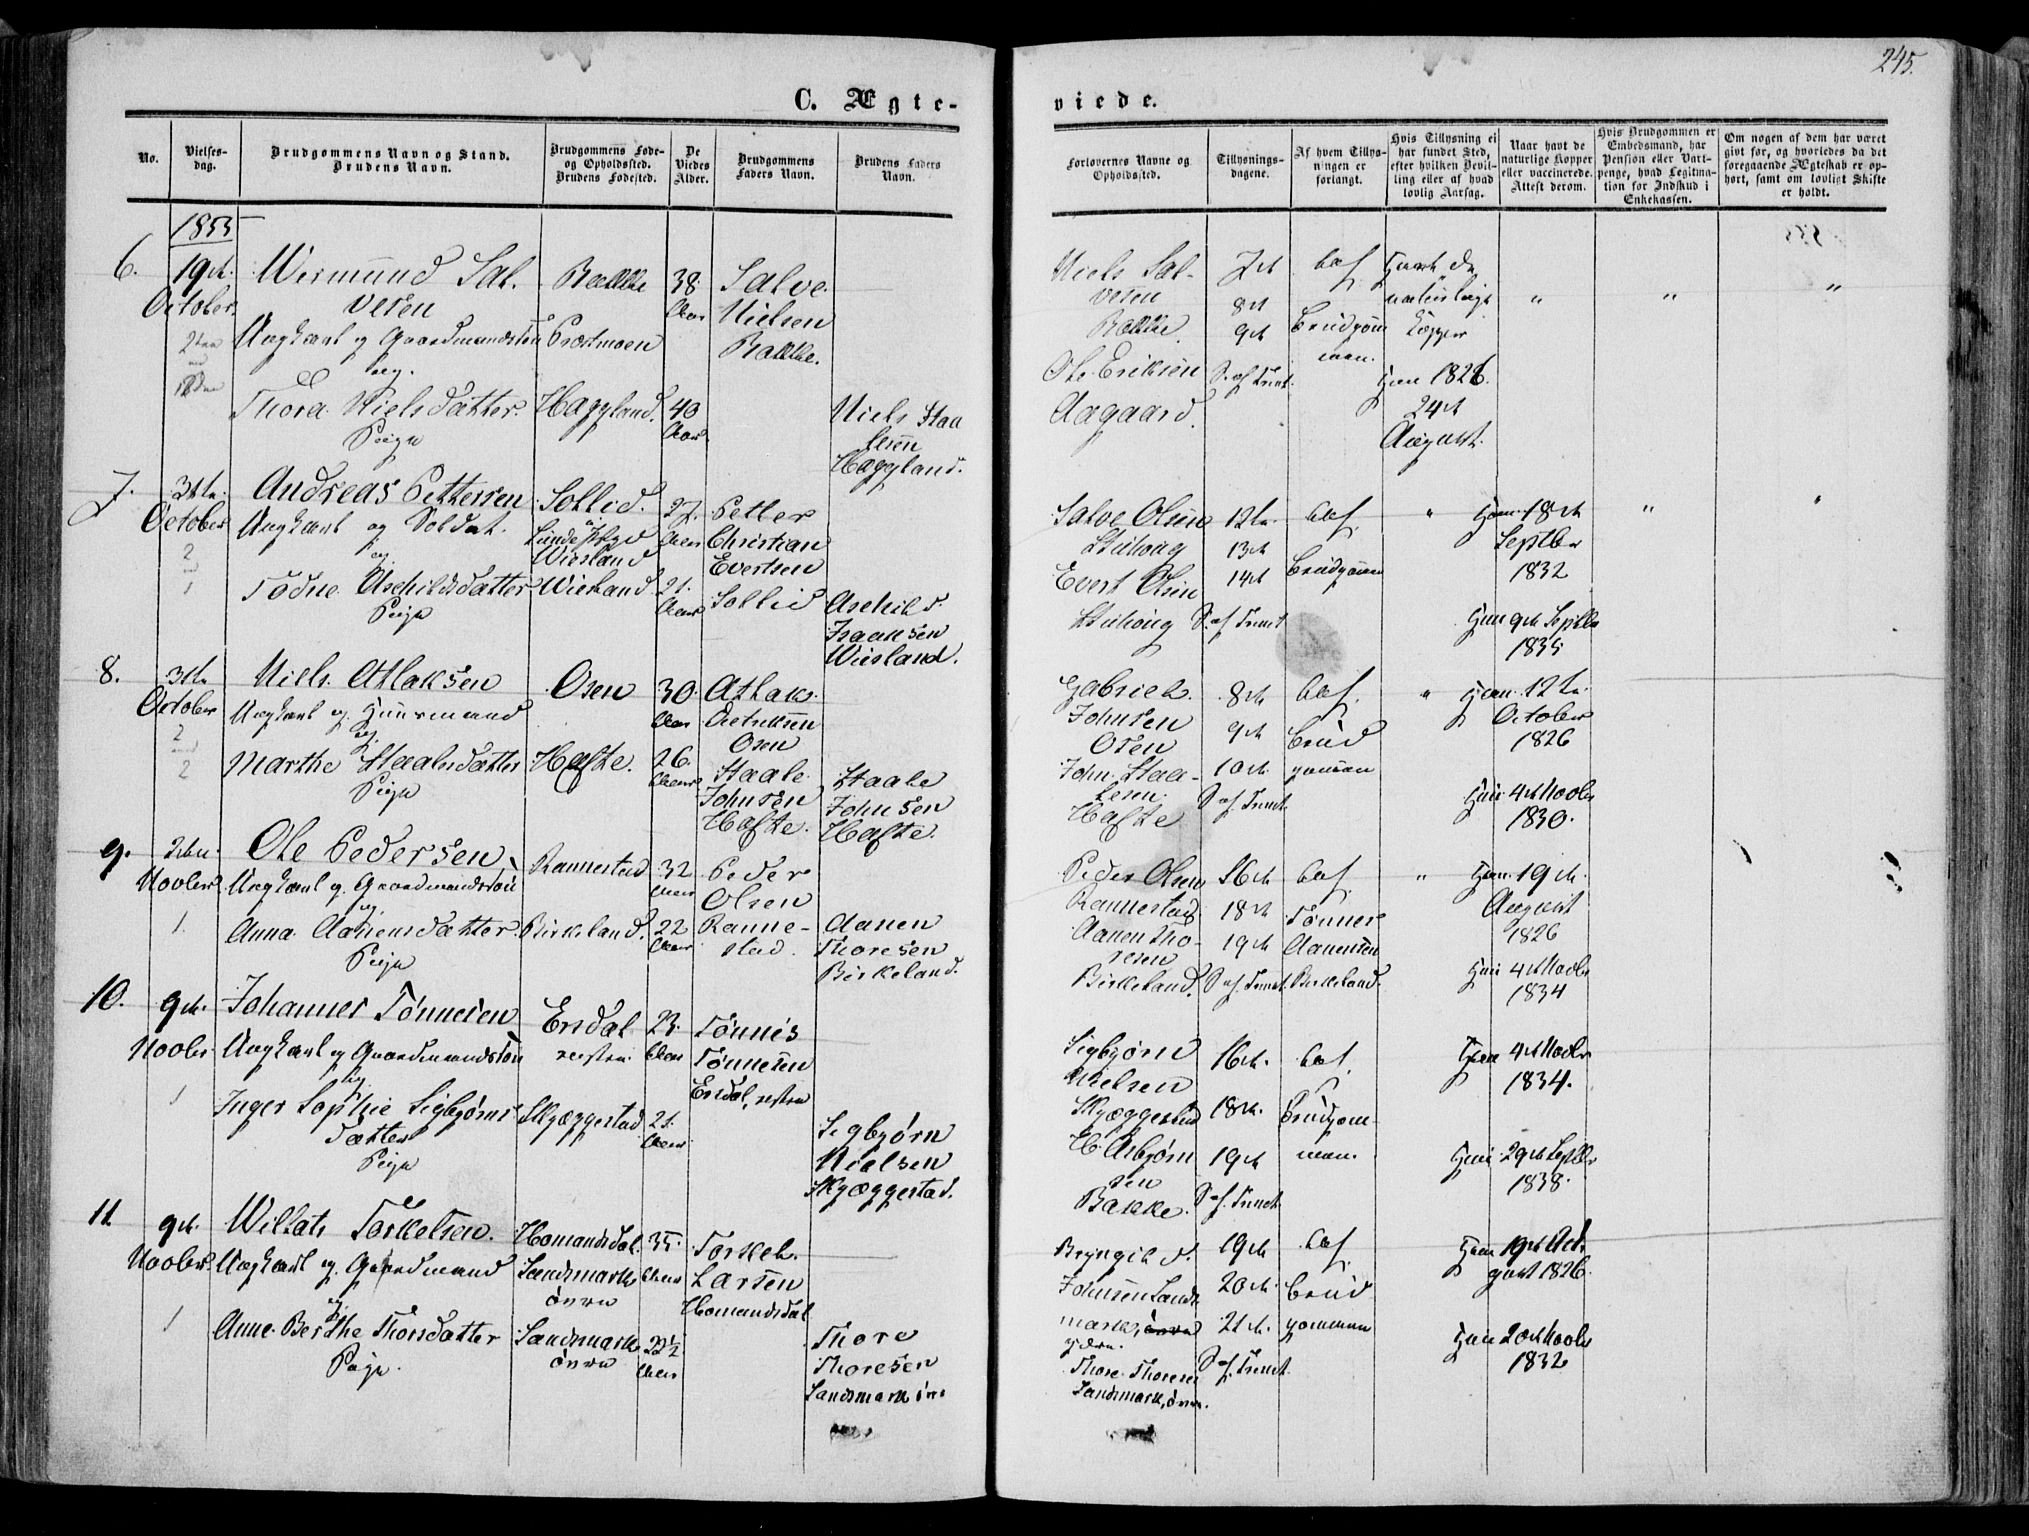 245.
C. Ægte-
viede.
No.
Vielses-
dag.
Brudgommens Navn og Stand.
Brudens Navn.
Brudgommens Føde-
og Opholdssted.
Brudens Fødested.
De
Viedes
Alder.
Brudgommens
Faders Navn.
Brudens Faders
Navn.
Forlovernes Navne og
Opholdssted.
Tillysnings-
dagene.
Af hvem Tillys-
ningen er
forlangt.
Hvis Tillysning ei
har fundet Sted,
efter hvilken Bevil-
ling eller af hvad
lovlig Aarsag.
Naar havt de
naturlige Kopper
eller vaccinerede.
Attest derom.
Hvis Brudgommen er
Embedsmand, har
Pension eller Vart-
penge, hvad Legitima-
tion for Indskud i
Enkekassen.
Om nogen af dem har været
givt før, og hvorledes da det
foregaaende Ægteskab er op-
hørt, samt om lovligt Skifte
er holdt.
1855
6.
19de
October
Wermund Sal-
vesen
Ungkarl og Gaardmandssøn
og
Thora Nielsdatter
Pige
Bakke
Prestmoen
Hæggland
38
Aar
40
Aar
Salve
Nielsen
Bakke.
Niels Staa
lesen
Hæggland.
Niels Sal-
vesen
Bakke.
Ole Eriksen
Aagaard.
7de
8de
9de
S. af Trinit.
af
Brudgom
men.
Havt de
naturlige
Kopper
Hun 1826.
24de
August.
7.
31te
October
2
1
Andreas Pettersen
Ungkarl og Soldat.
og
Tødne Aschildsdatter
Pige
Sollid.
Wiesland
Wiesland
27.
Aar
21.
Aar
Petter
Christian
Evertsen
Sollid
Aschild
Isaaksen
Wiesland.
Salve Olsen
Evert Olsen
12te
13de
14de
S. af Trinit
af
Brudgommen
Han 18de
Septbr
1832
Hun 9de Septbr
1835
8.
31te
October
2
2
Niels Atlaksen
Ungkarl og Huusmand
og
Marthe Staalesdatter
Pige
Osen
Hafte.
30
Aar
26
Aar
Atlak
Osen
Staale
Johnsen
Hafte.
Staale
Johnsen
Hafte.
Gabriel
Johnsen
Osen
John Staa-
lesen
Hafte
8de
9de
10de
S. af Trinit.
af
Brud
gommen
Han 12te
October
1826
Hun 4de Novbr
1830.
9.
2den
Novbr
1.
Ole Pedersen
Ungkarl og Gaardmandssøn
og
Anna Aanensdatter
Pige
Rannestad
Birkeland.
32
Aar
22
Aar
Peder
Olsen
Ranne-
stad.
Aanen
Thoresen
Birkeland.
Peder Olsen
Rannestad
Aanen Tho-
resen
Birkeland.
16de
18de
19de
S. af Trinit.
af
Tønnes
Aanensen
Birkeland.
Han 19de
August
1826
Hun 4de Novbr
1834
10.
9de
Novbr
1
Johannes Tønnesen
Ungkarl og Gaardmandssøn
og
Inger Sophie Sigbjørns
datter
Pige
Ersdal
vestre
Skjæggestad
23.
Aar
21.
Aar
Tønnes
Tønnesen
Ersdal, vestre
Sigbjørn
Nielsen
Skjæggestad.
Sigbjørn
Nielsen
Skjæggestad
H. Asbjørn
sen
Bakke.
16de
18de
19de
S. af Trinit.
af
Brudgom-
men.
Han 4de Novbr
1834.
Hun 29de Septbr
1838.
11
9de
Novbr
1
Willats Torkelsen.
Ungkarl og Gaardmand
og
Anne Berthe Thorsdatter
Pige.
Homandsdal
Sandsmark
øvre
Sandsmark
øvre
35
Aar
22½
Aar
Torkel
Larsen
Homandsdal
Thore
Thoresen
Sandsmark øvre
Bryngild
Johnsen Sands
mark, øvre
ydre.
Thore Thoresen
Sandsmark, øvre.
19de
20de
21de
S. af Trinit.
af
Brud
gommen
Han 19de Au
gust 1826.
Hun 20de Novbr
1832